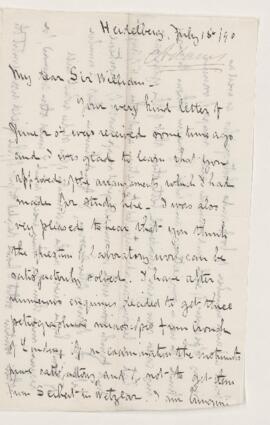 Heidelberg, July 18th/90
My dear Sir William -
Your very kind letter of
June 2nd was received some time ago
and I was glad to learn that you
approved of the arrangements which I had
made for study here - I was also
very pleased to hear that you think
the question of Laboratory work can be
satisfactorily solved. I have after
numerous enquiries decided to get three
petrographical microscopes from Crouch
of London, if on examination the instruments
prove satisfactory, and if not to get them
from Seibert in Wetzlar. I am